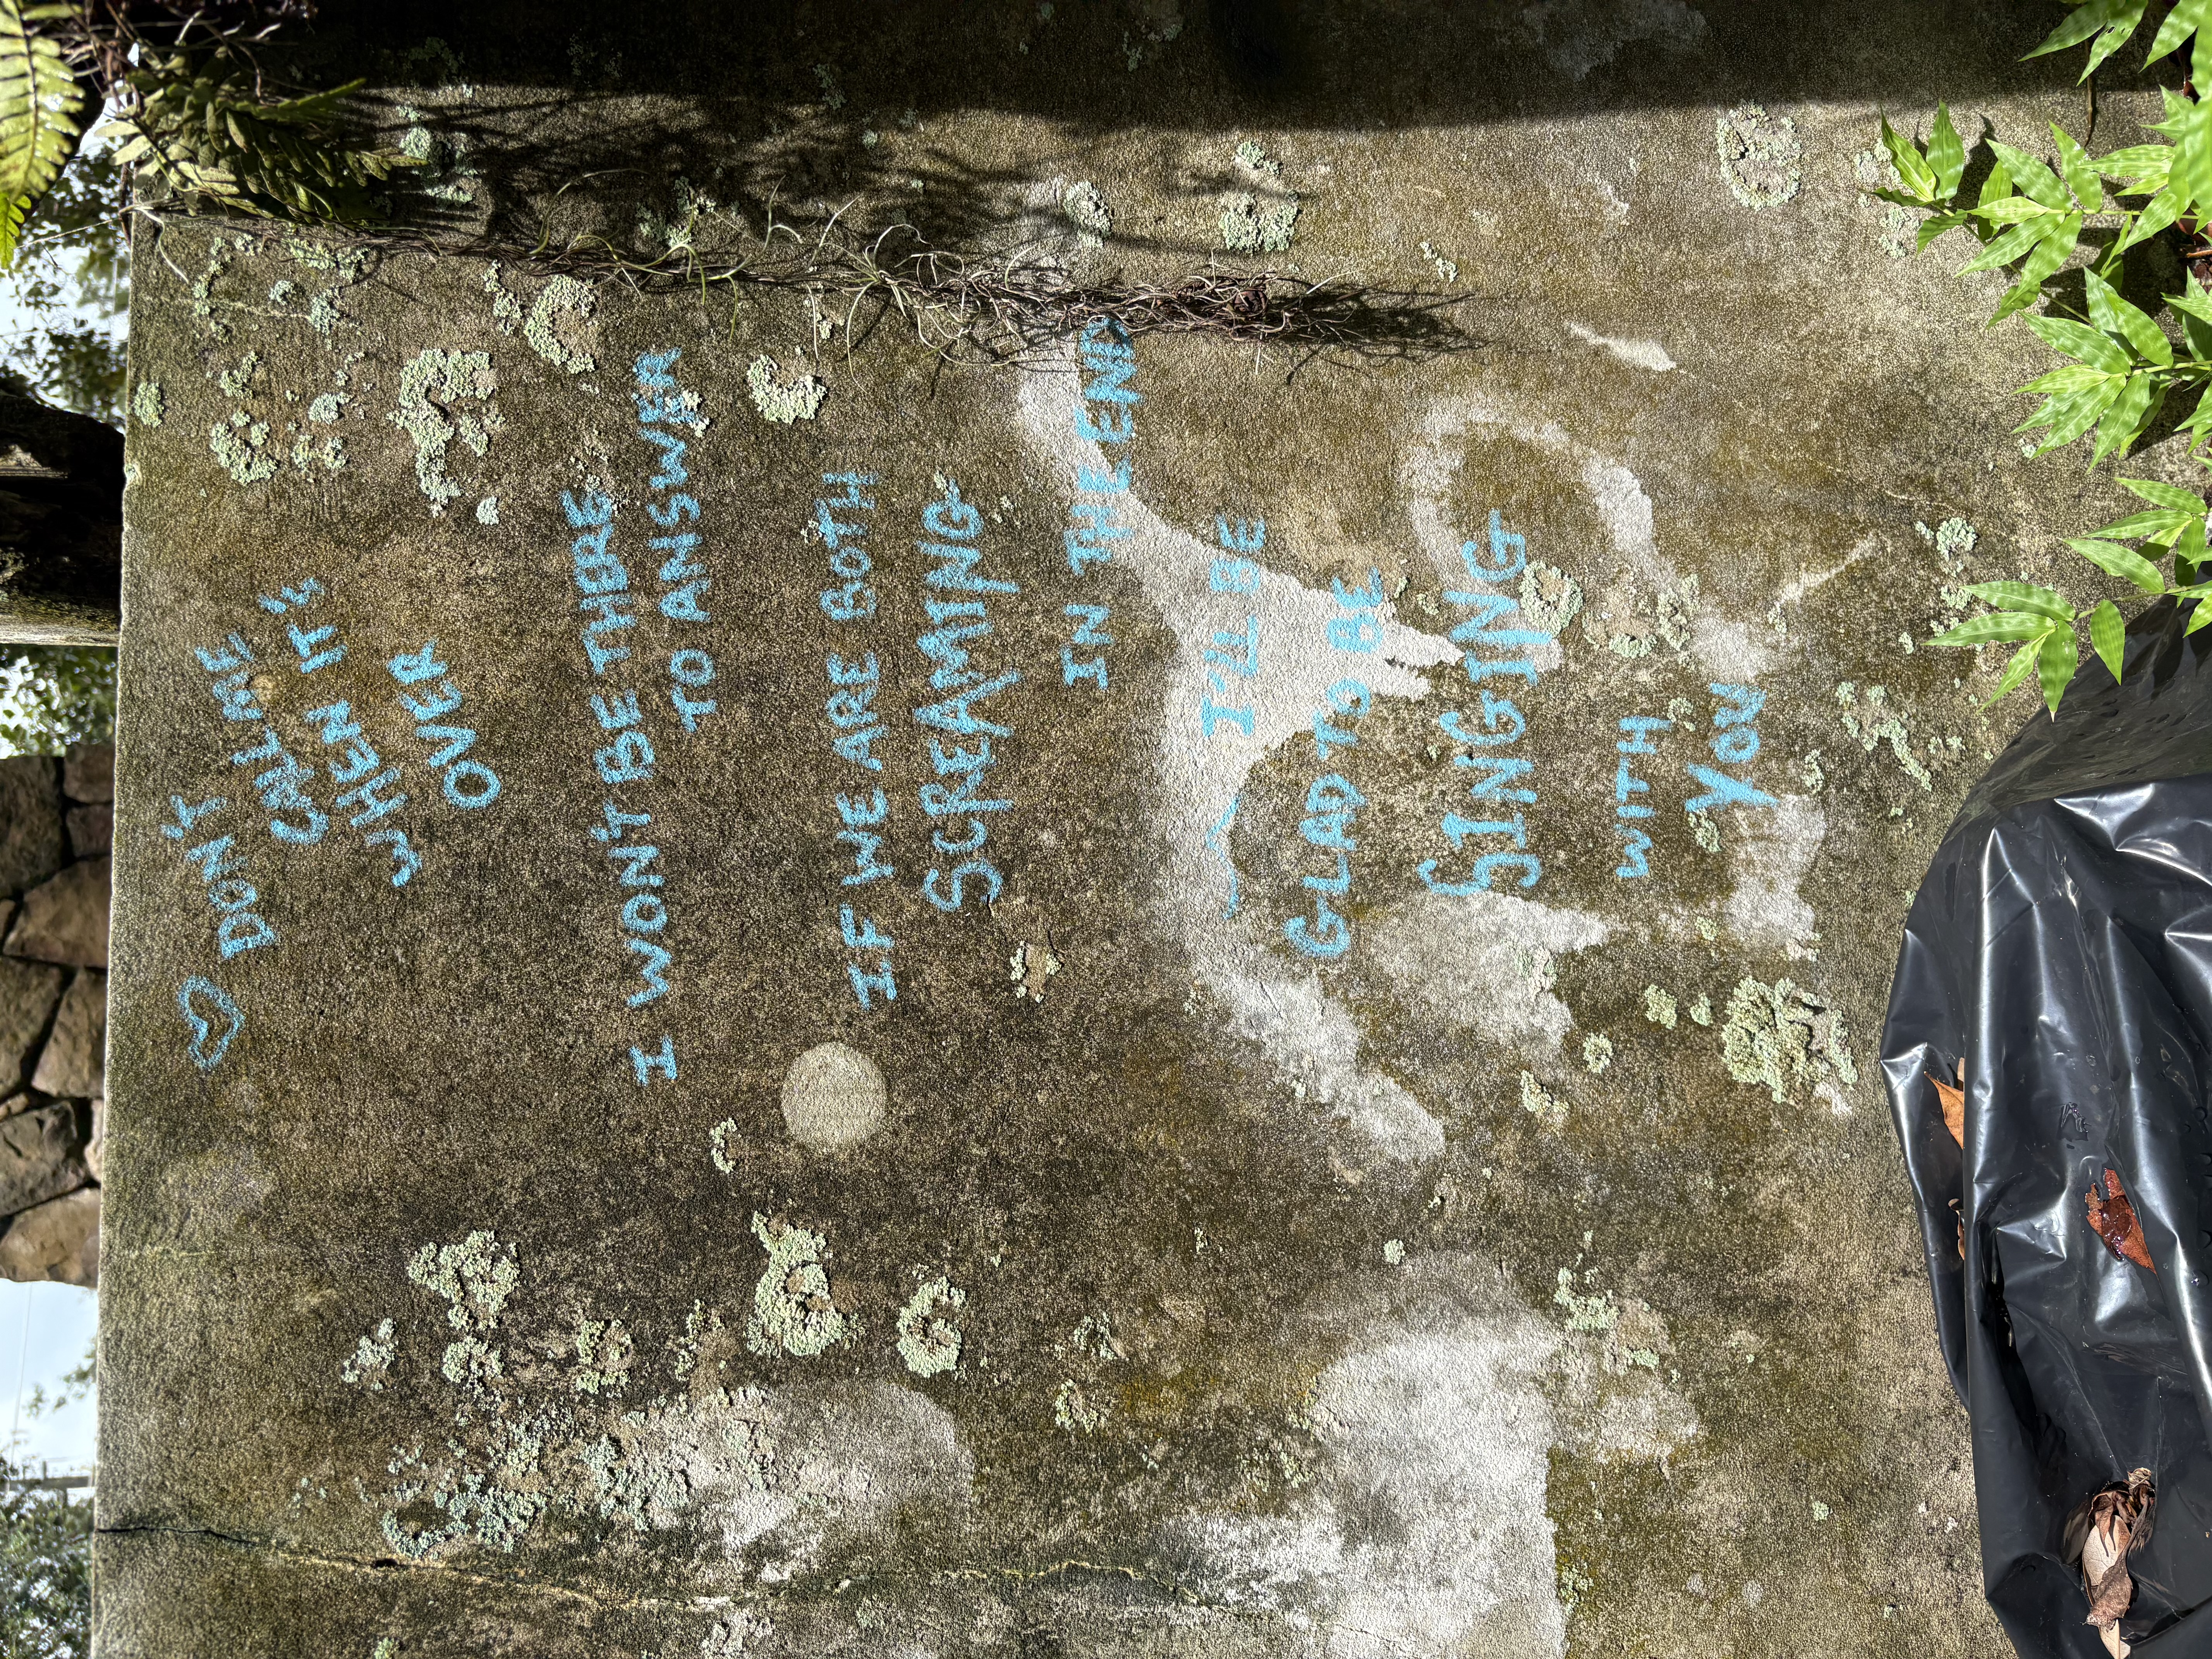 DON'T
CALL ME
WHEN IT'S
OVER
I WON'T BE THERE
TO ANSWER
IF WE ARE BOTH
SCREAMING
IN THE END
I'LL BE
GLAD TO BE
SINGING
WITH
YOU